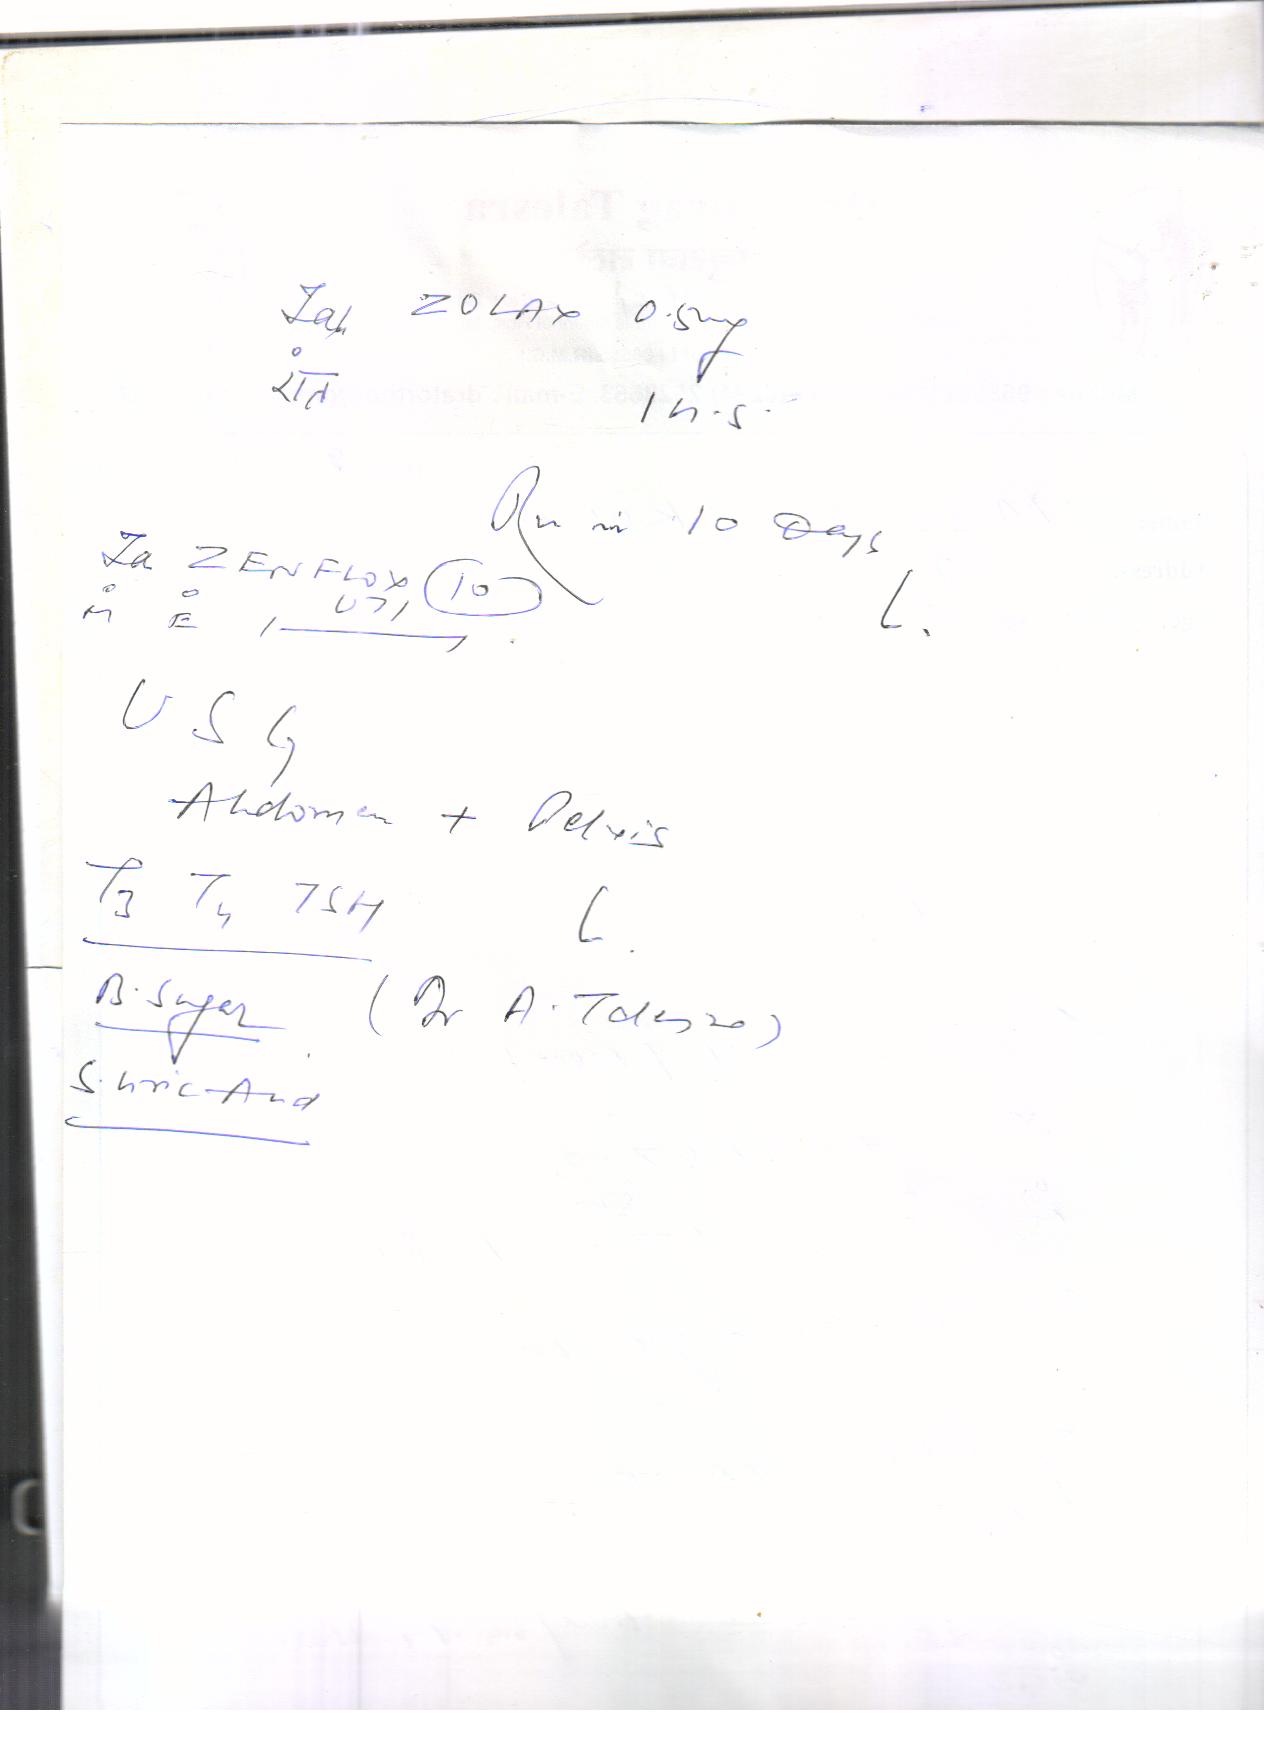 Tab ZOLAX 0.5mg
1 h.s.
in 10 Days
Ta ZENFLOX 10
UTI
M E 1
USG
Abdomen + Pelvis
T3 T4 TSH
B. Sugar (Dr A. Talesra)
S. Uric Acid